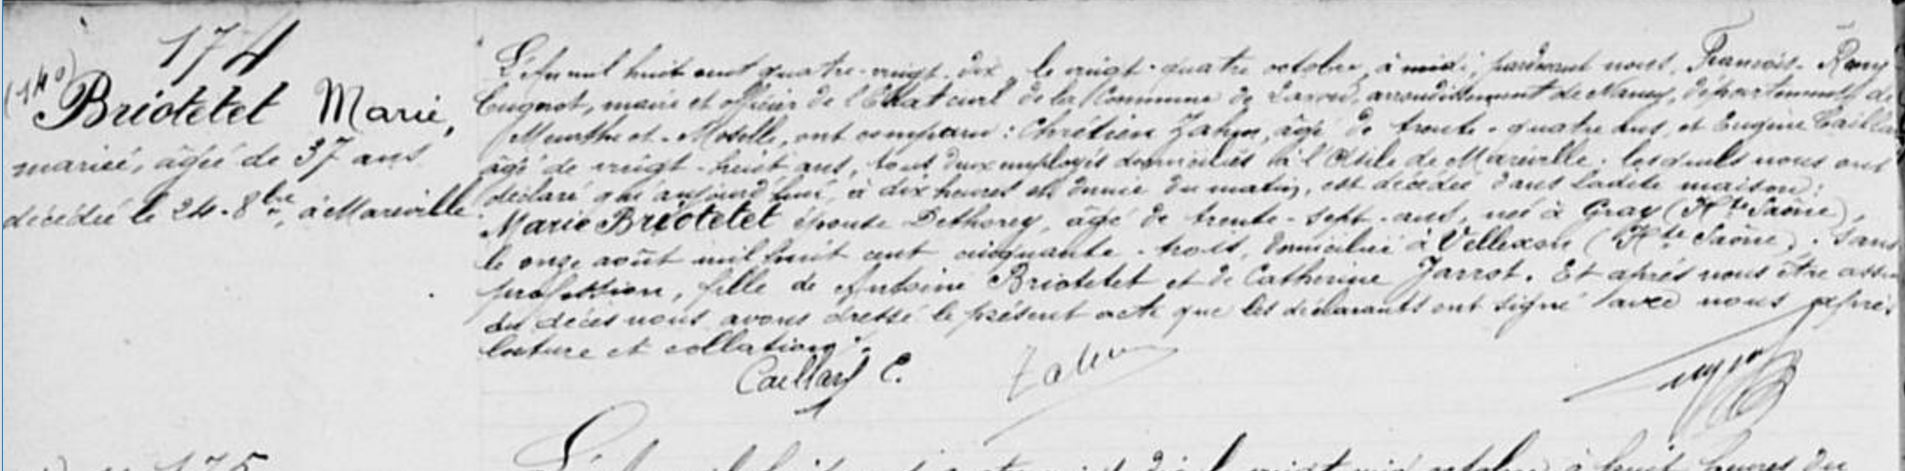 174
(140)
Briotetet Marie,
mariée, âgée de 37 ans
décédée le 24 8bre, à Maréville
L'An mil huit cent quatre-vingt-dix, le vingt-quatre octobre, à midi, pardevant nous, François-Remy
Cugnot, maire et officier de l'Etat civil de la Commune de Laxou, arrondissement de Nancy, département de
Meurthe-et-Moselle, ont comparu : Chrétien Zahm, âgé de trente-quatre ans, et Eugène Caillard
âgé de vingt-huit ans, tous deux employés domiciliés à l'Asile de Maréville. lesquels nous ont
déclaré que aujourd'hui, à dix heures et demie du matin, est décédée dans ladite maison :
Marie Briotetet épouse Dethorey, âgé de trente-sept ans, née à Gray (Hte Saône),
le onze août mil huit cent cinquante-trois, domiciliée à Vellexon (Hte Saône). Sans
profession, fille de Antoine Briotetet et de Catherine Jarrot. Et après nous être assuré
du décès nous avons dressé le présent acte que les déclarants ont signé avec nous après
lecture et collation.
Caillard E. Zahm
175
L'An mil huit cent quatre-vingt-dix, le vingt octobre, à huit heures du